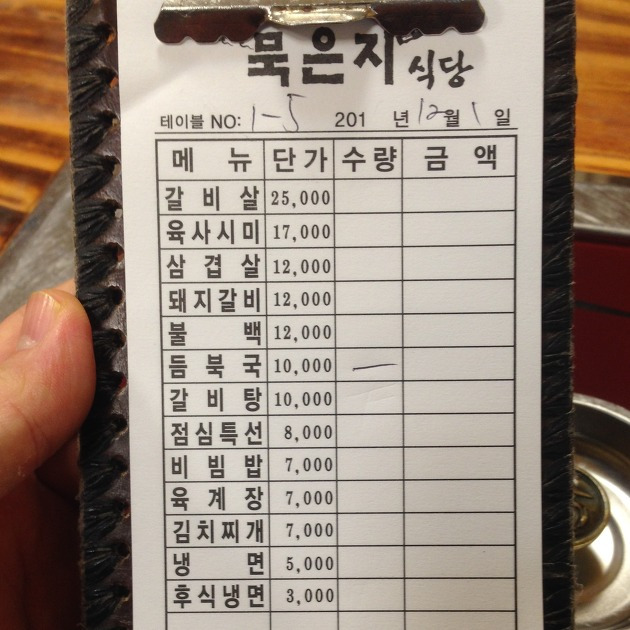 묵은지 식당
테이블 NO: 1-5 201 년 12월 1 일
메 뉴 단가 수량 금 액
갈 비 살 25,000
육사시미 17,000
삼 겹 살 12,000
돼지갈비 12,000
불 백 12,000
듬 북 국 10,000 一
갈 비 탕 10,000
점심특선 8,000
비 빔 밥 7,000
육 계 장 7,000
김치찌개 7,000
냉 면 5,000
후식냉면 3,000